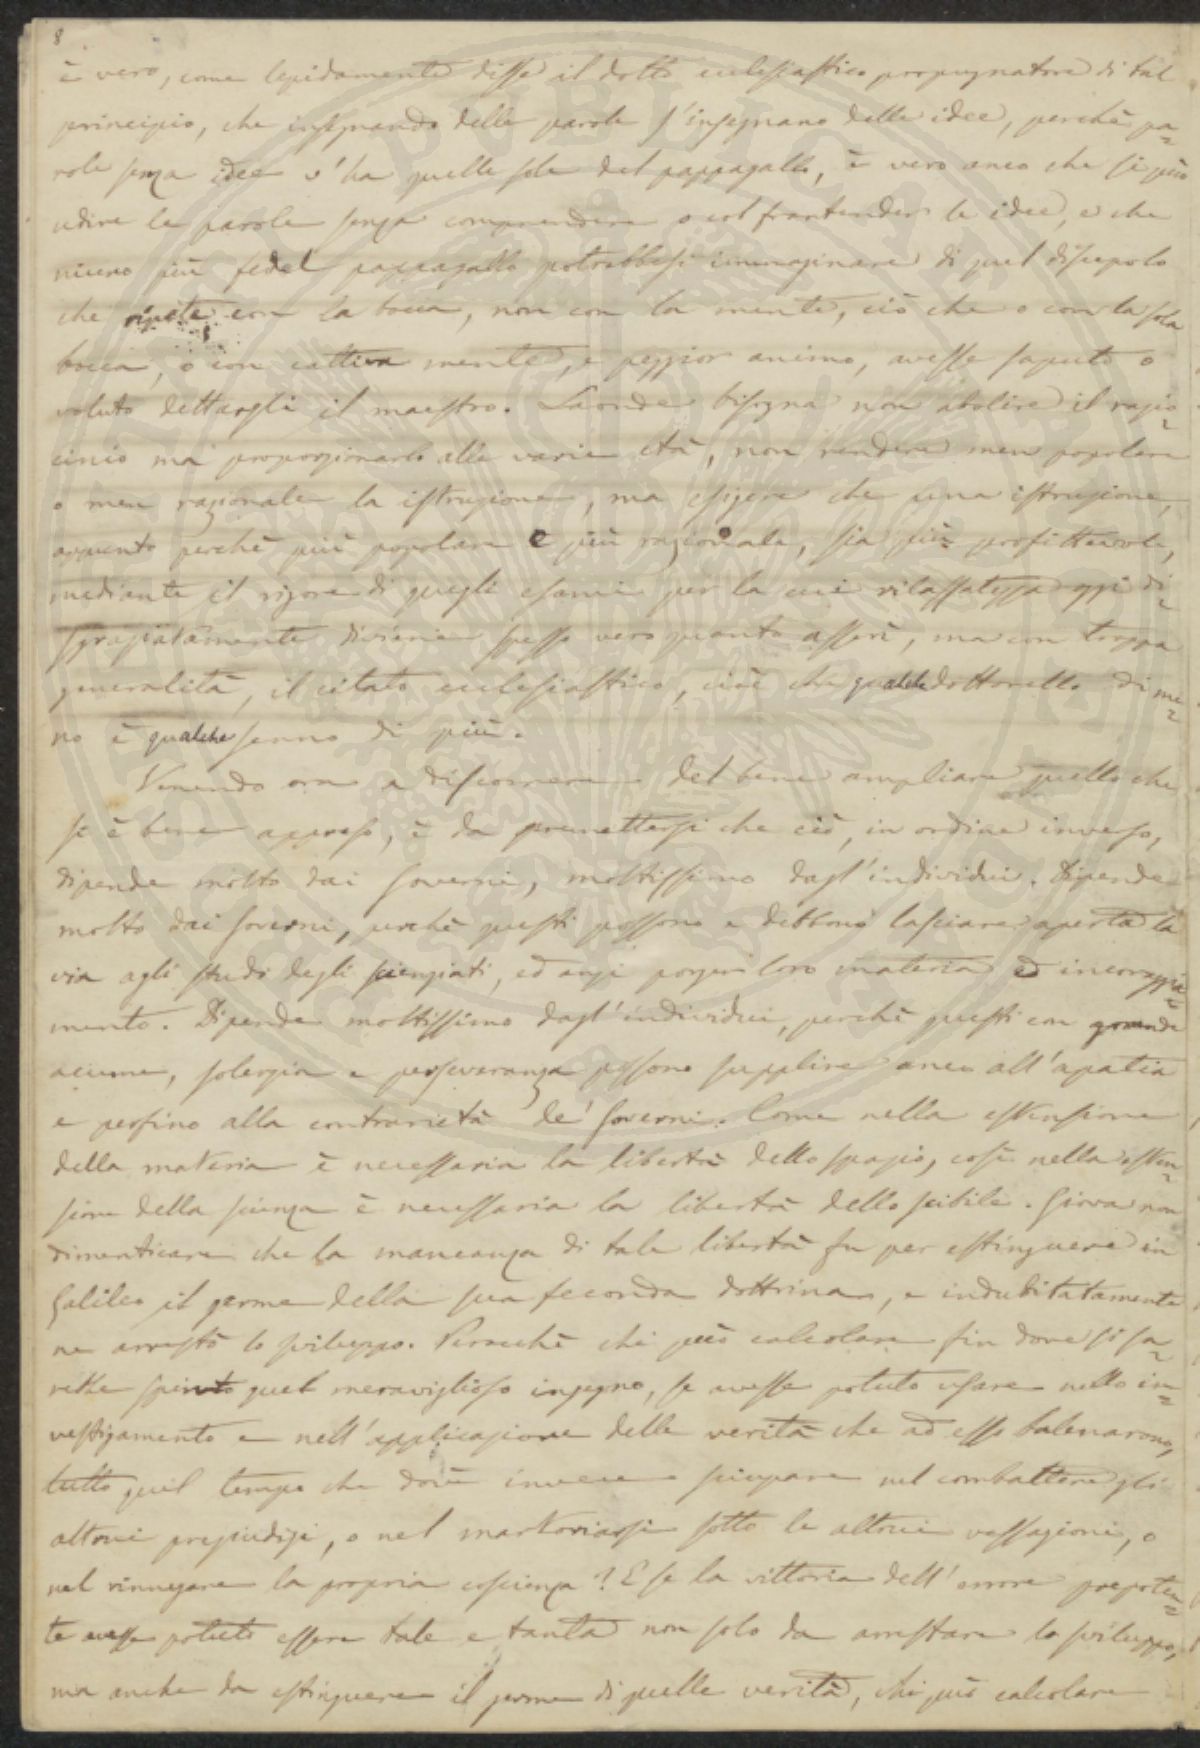 8
è vero, come lepidamente disse il dotto ecclesiastico propugnatore di tal
principio, che insegnando delle parole s'insegnano delle idee, perchè pa=
role senza idee v'ha quelle sole del pappagallo, è vero anco che si può
udire le parole senza comprendere o col frantender le idee, e che
niuno più fedel pappagallo potrebbesi immaginare di quel discepolo
che ripete con la bocca, non con la mente, ciò che o con la sola
bocca, o con cattiva mente, e peggior animo, avesse saputo o
voluto dettargli il maestro. Laonde bisogna non abolire il razio=
cinio ma proporzionarlo alle varie età, non rendere men popolare
o men razionale la istruzione, ma esigere che una istruzione,
appunto perchè più popolare e più razionale, sia più profittevole,
mediante il rigore di quegli esami per la cui rilassatezza oggi di=
sgraziatamente diviene spesso vero quanto asserì, ma con troppa
generalità, il citato ecclesiastico, cioè che qualche dottorello di me=
no è qualche senno di più.
Venendo ora a discorrere del bene ampliare quello che
si è bene appreso, è da premettersi che ciò, in ordine inverso,
dipende molto dai Governi, moltissimo dagl'individui. Dipende
molto dai Governi, perchè questi possono e debbono lasciare aperta la
via agli studi degli scienziati, ed anzi porger loro materia ed incoraggia=
mento. Dipende moltissimo dagl'individui, perchè questi con grande
acume, solerzia e perseveranza possono supplire anco all'apatia
e perfino alla contrarietà de' Governi. Come nella estensione
della materia è necessaria la libertà dello spazio, così nella esten=
sione della scienza è necessaria la libertà dello scibile. Giova non
dimenticare che la mancanza di tale libertà fu per estinguere in
Galileo il germe della sua feconda dottrina, e indubitatamente
ne arrestò lo sviluppo. Perocchè chi può calcolare fin dove si sa=
rebbe spinto quel meraviglioso ingegno, se avesse potuto usare nello in=
vestigamento e nell'applicazione delle verità che ad esso balenarono,
tutto quel tempo che dovè invece sciupare nel combattere gli
altrui pregiudizi, o nel martoriarsi sotto le altrui vessazioni, o
nel rinnegare la propria coscienza? E se la vittoria dell'errore prepoten=
te avesse potuto essere tale e tanta non solo da arrestare lo sviluppo,
ma anche da estinguere il germe di quelle verità, chi può calcolare